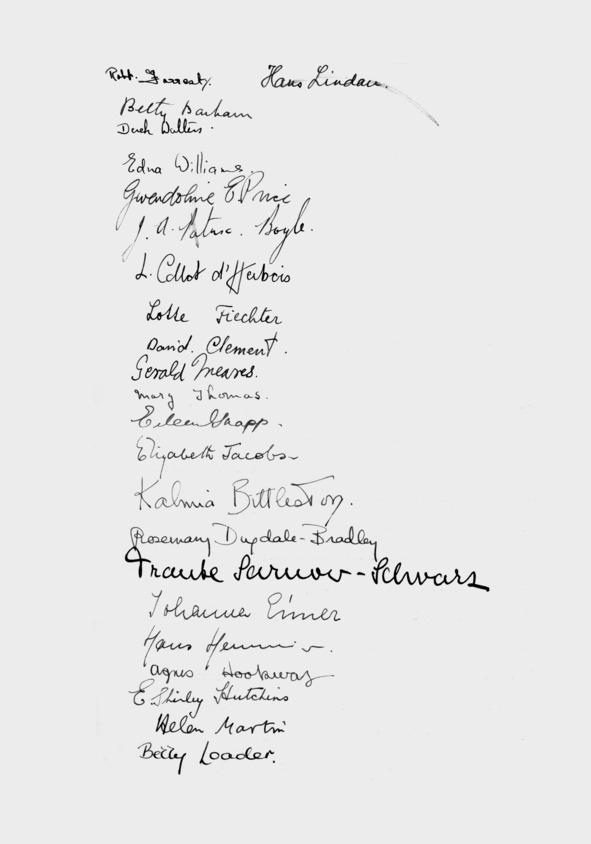 Robt. Hans Lindau.
Betty Barham
Derek Walters.
Edna Williams.
Gwendoline E Price
J. A. Boyle.
L. Collot d'Herbois
Lotte Fiechter
David. Clement.
Gerald Meares.
Mary Thomas.
Eileen
Elizabeth Jacobs
Kalmia Bittleston.
Rosemary Dugdale-Bradley
Traute
Johanna Eimer
Hans
Agnes Hookway
E. Shirley Hutchins
Helen Martin
Betty Loader.